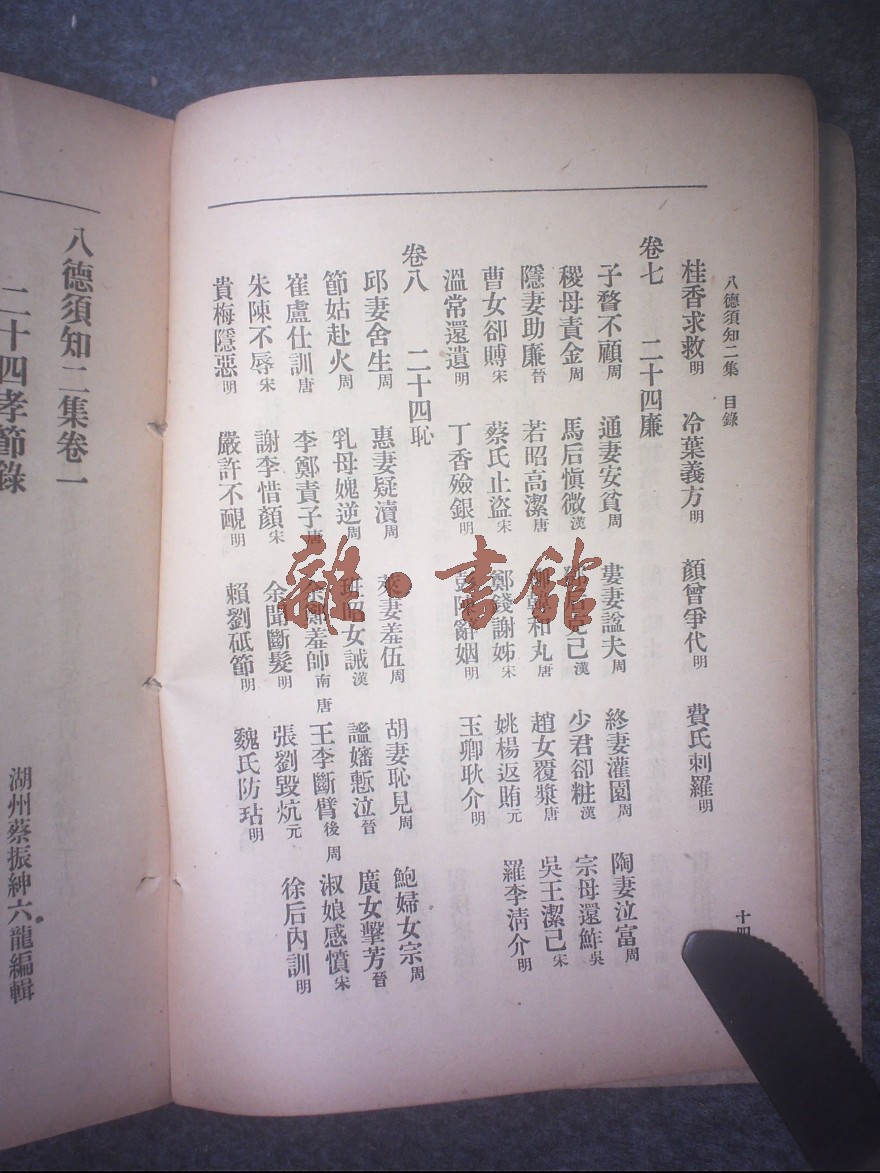 八德須知二集 目錄
桂香求救明 冷葉義方明 顏曾爭代明 費氏刺羅明
卷七 二十四廉
子瞀不顧周 通妻安貧周 婁妻諡夫周 終妻灌園周 陶妻泣富周
稷母責金周 馬后愼微漢 后克己漢 少君卻粧漢 宗母還鮓吳
隱妻助廉晉 若昭高潔唐 和丸唐 趙女覆漿唐 吳王潔己宋
曹女卻賻宋 蔡氏止盜宋 鄭錢謝姊宋 姚楊返賄元 羅李淸介明
溫常還遺明 丁香殮銀明 彭陳辭姻明 玉卿耿介明
卷八 二十四恥
邱妻舍生周 惠妻疑瀆周 萊妻羞伍周 胡妻恥見周 鮑婦女宗周
節姑赴火周 乳母媿逆周 班昭女誡漢 謐嬸慙泣晉 廣女擊芳晉
崔盧仕訓唐 李鄭責子唐 余鄭羞帥南唐 王李斷臂後周 淑娘感憤宋
朱陳不辱宋 謝李惜顏宋 余聞斷髮明 張劉毀炕元 徐后內訓明
貴梅隱惡明 嚴許不覿明 賴劉砥節明 魏氏防玷明
十四
八德須知二集卷一
二十四孝節錄
湖州蔡振紳六龍編輯
雜·書館